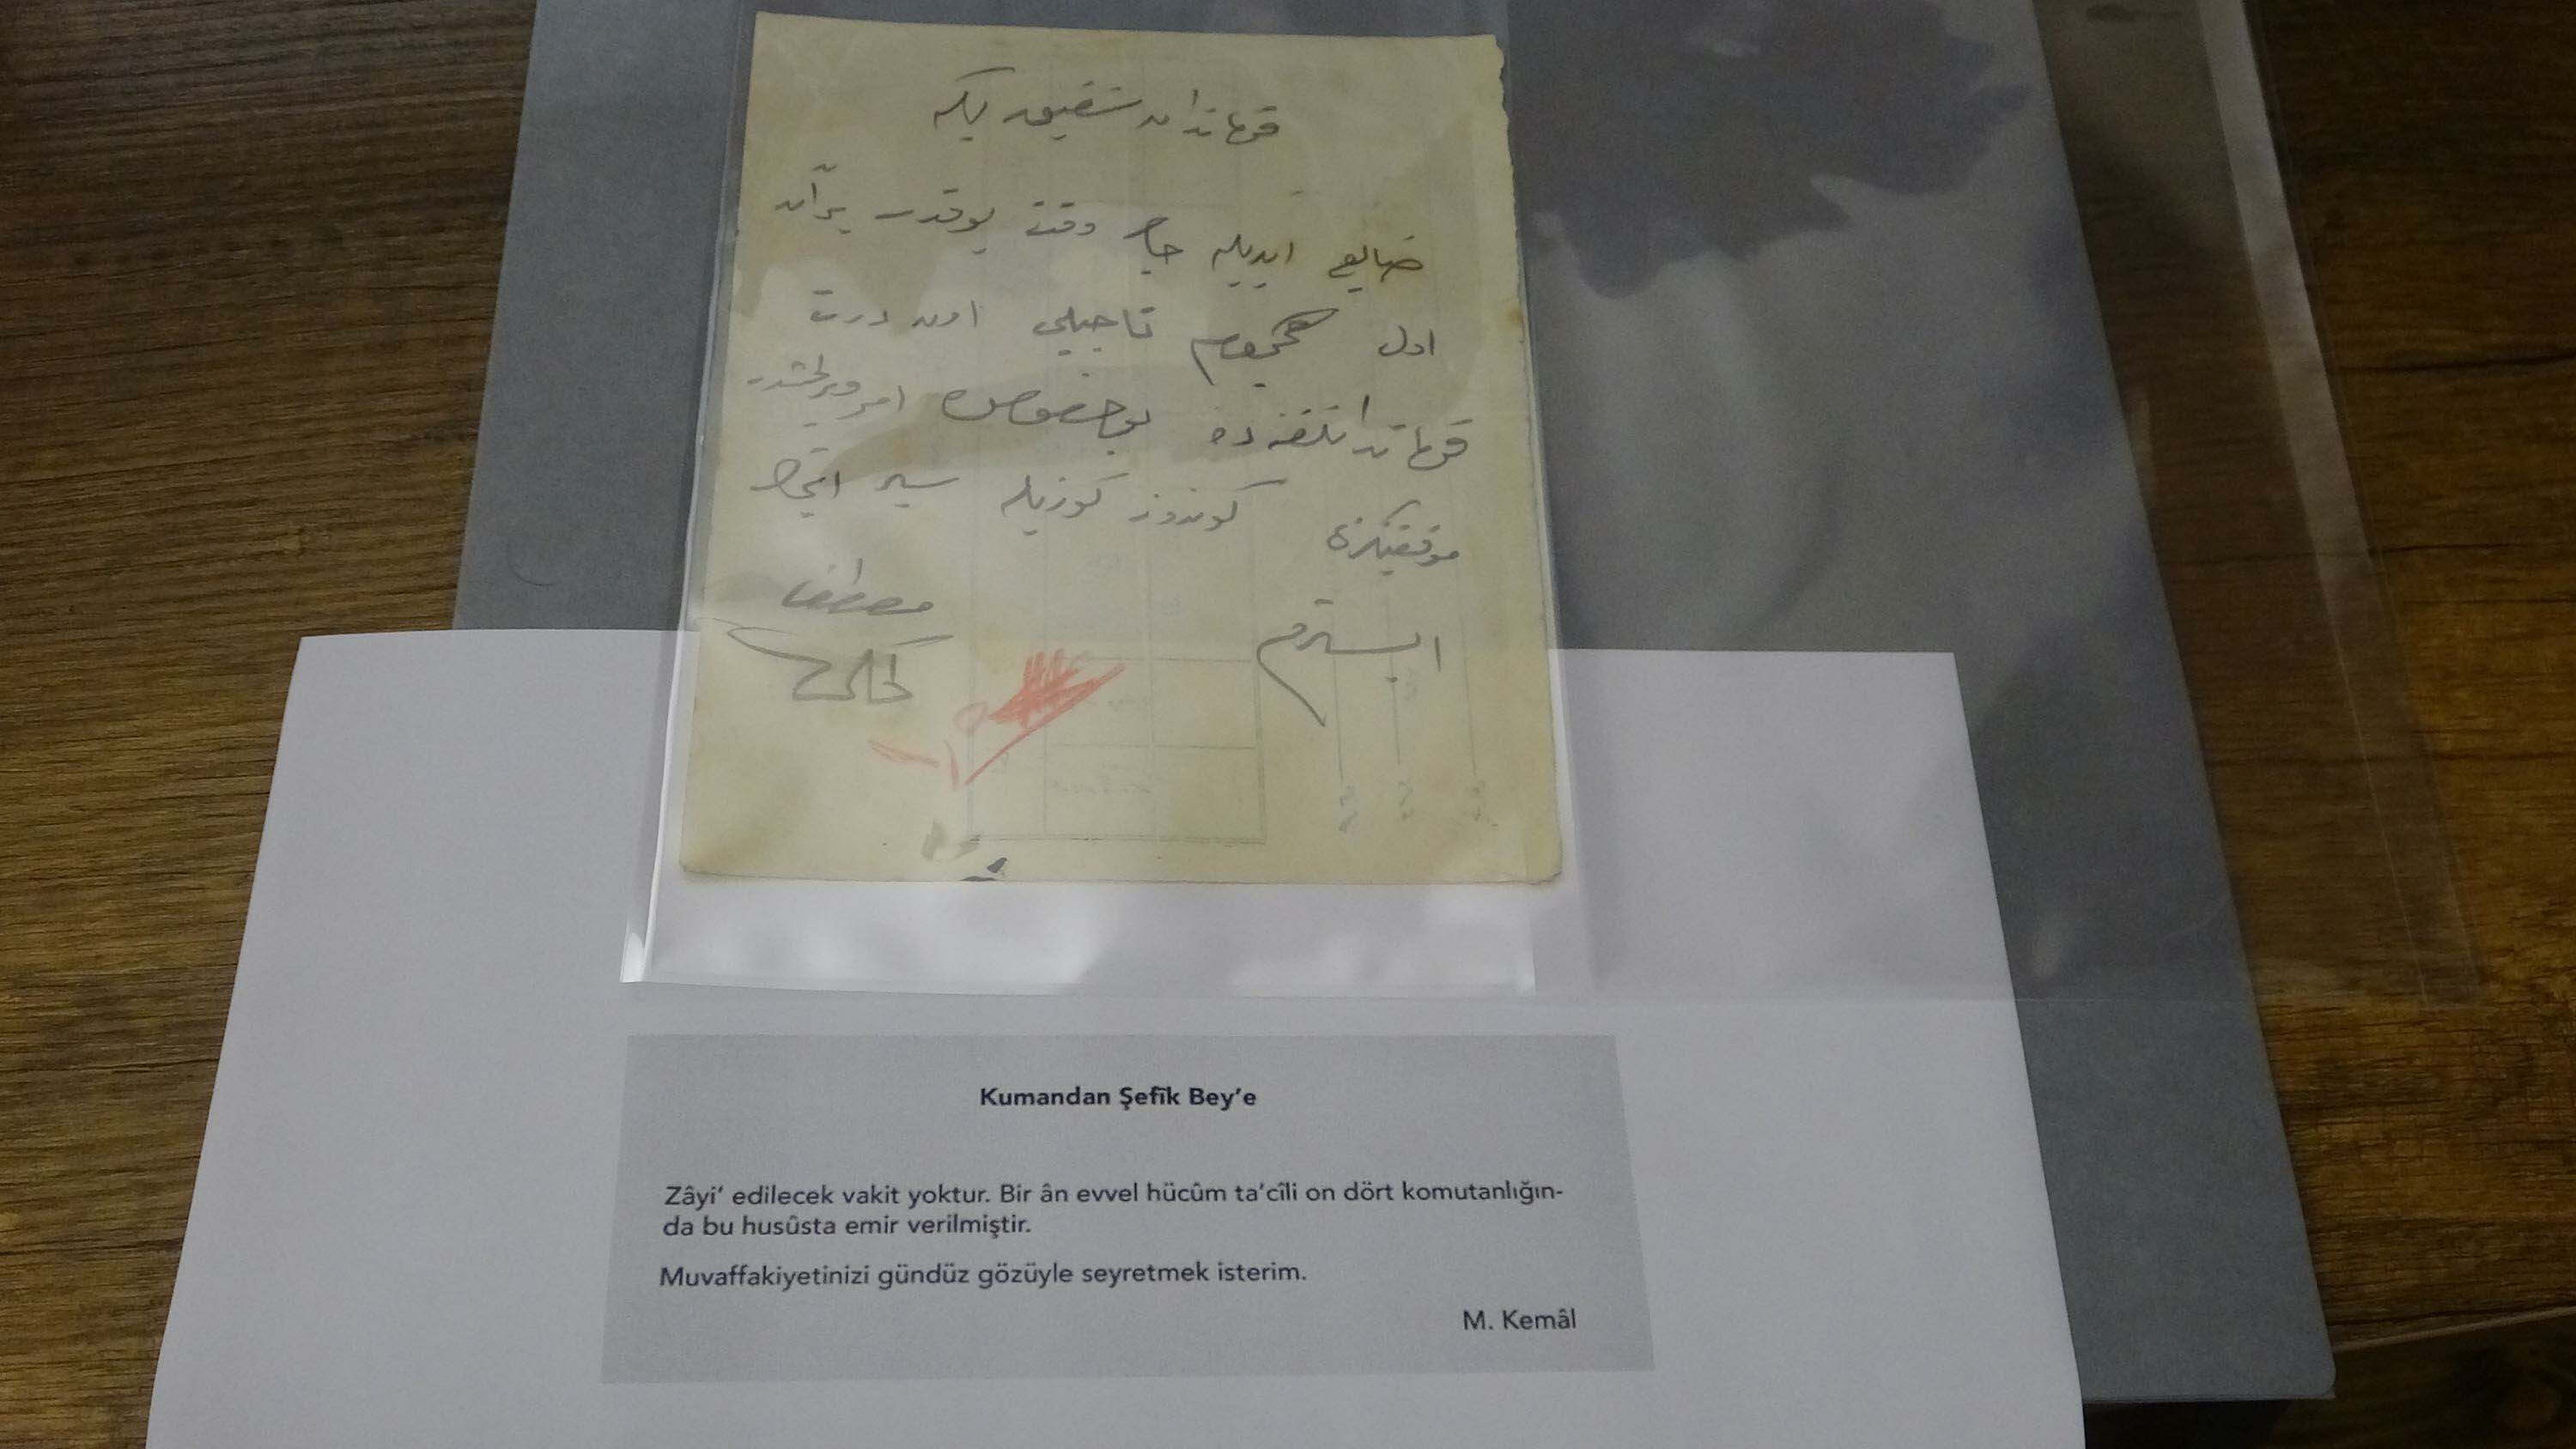 قوماندان شفيق بكه
ضايع ايديله جك وقت يوقدر بر آن
اول هجوم تاجيلى اون درت
قوماندانلغنده بو خصوصده امر ويرلمشدر
موفقيتكزى كوندوز كوزيله سير ايتمك
ايسترم
مصطفى
كمال
Kumandan Şefîk Bey’e
Zâyi’ edilecek vakit yoktur. Bir ân evvel hücûm ta’cîli on dört komutanlığın-
da bu husûsta emir verilmiştir.
Muvaffakiyetinizi gündüz gözüyle seyretmek isterim.
M. Kemâl